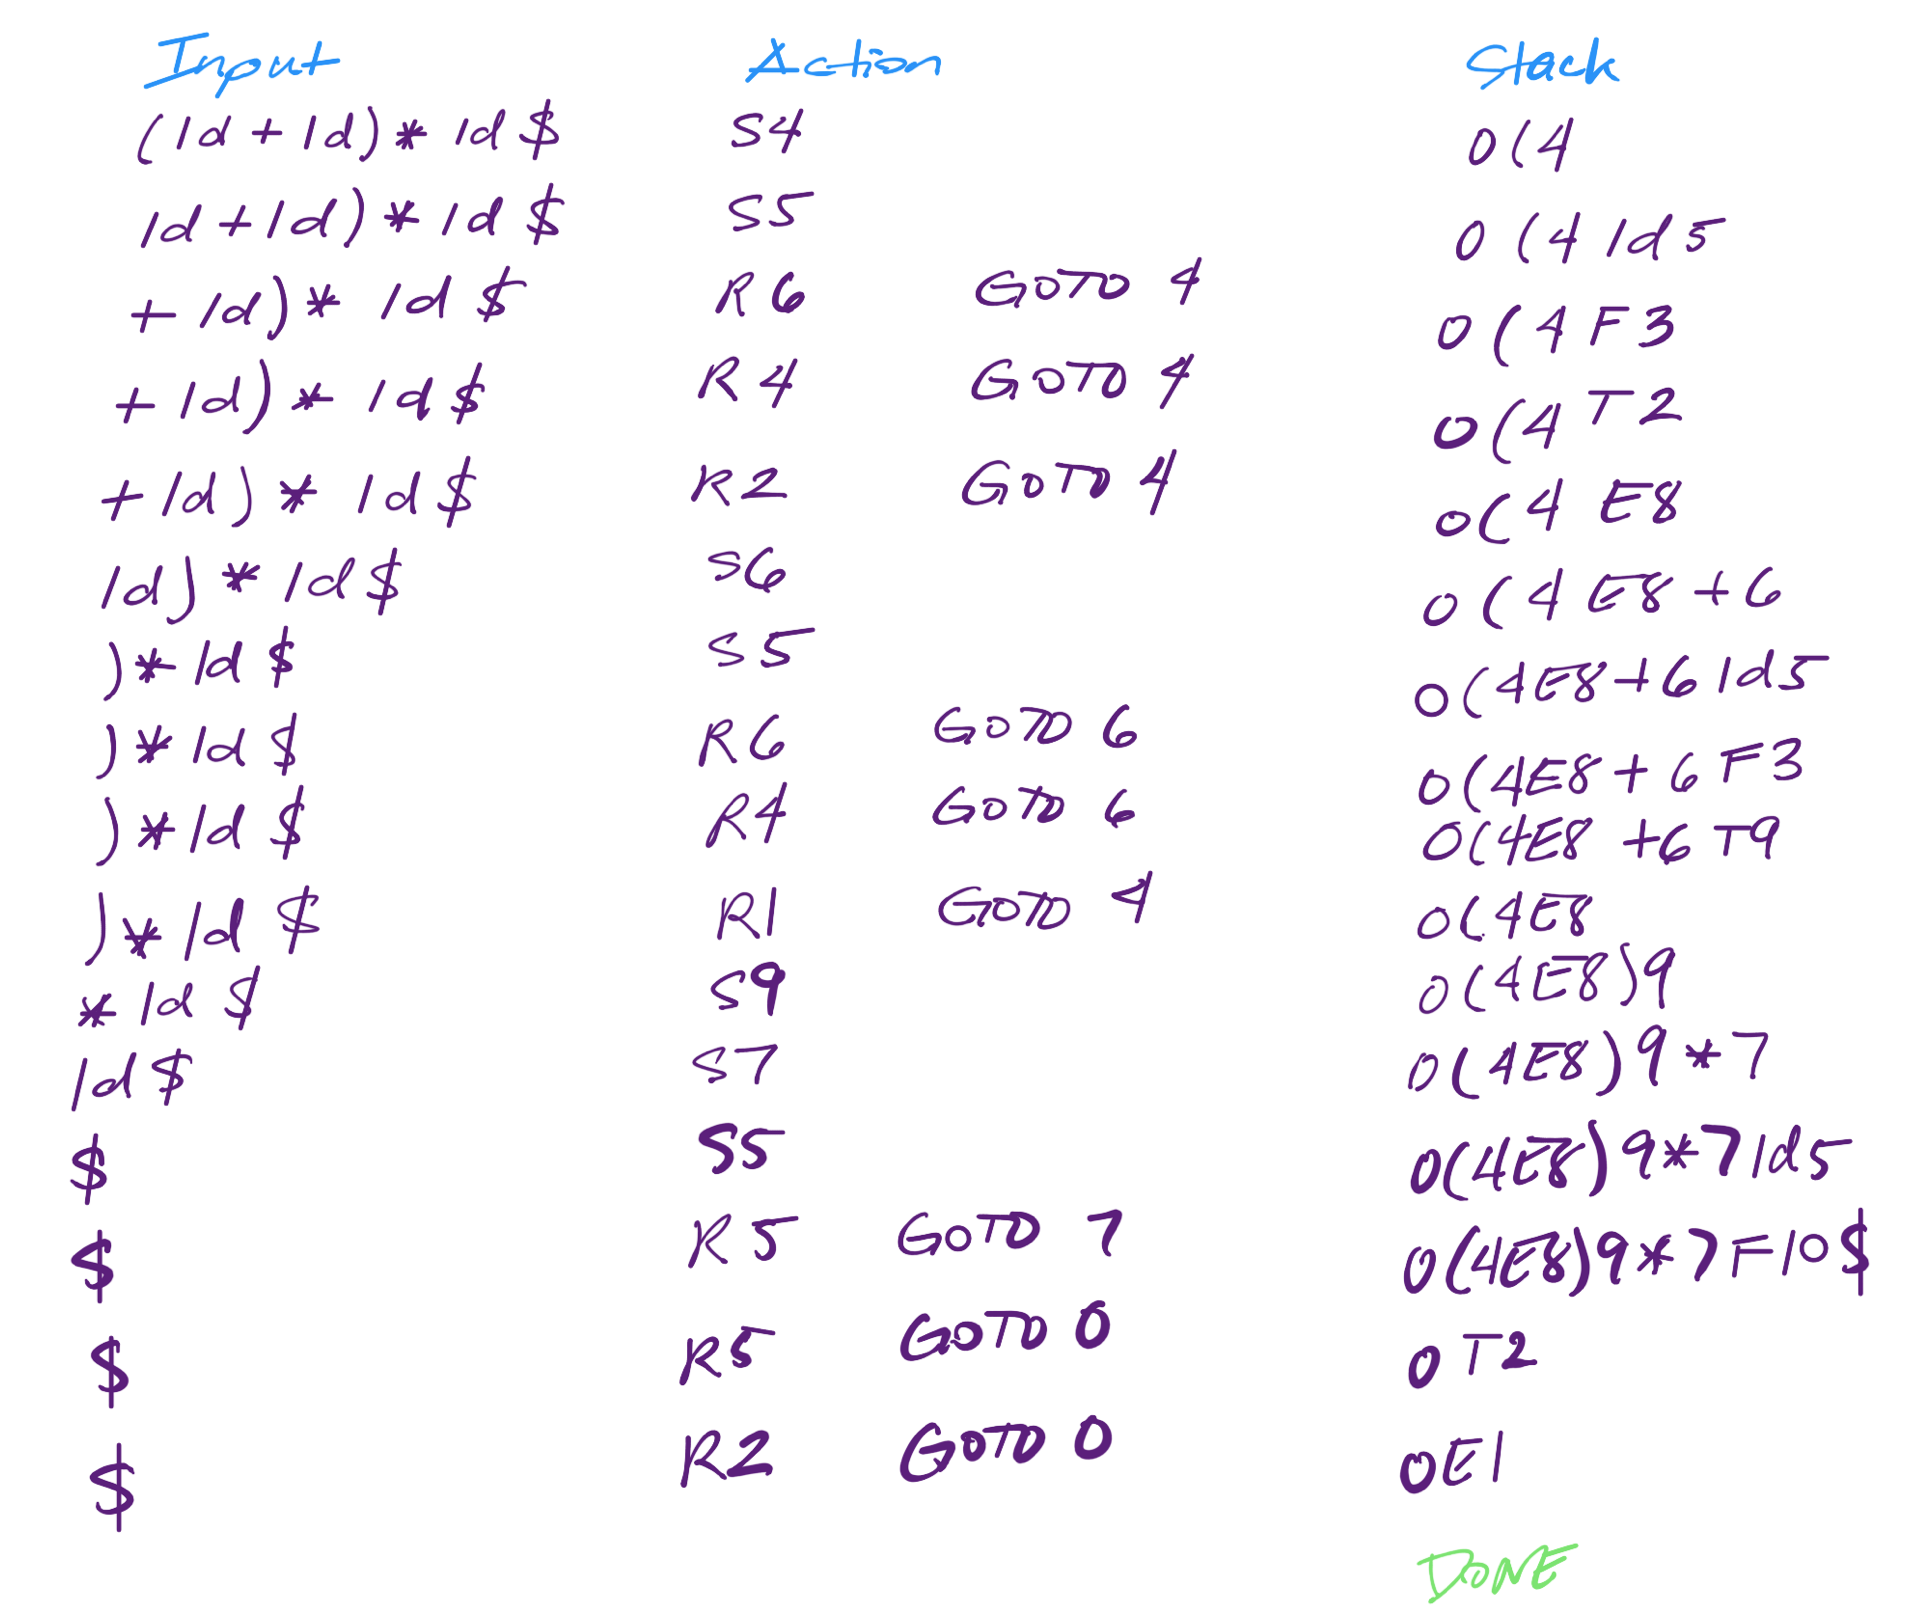 Input Action Stack
(Id + Id) * Id $ S4 0(4
Id + Id) * Id $ S5 0(4 Id 5
+ Id) * Id $ R6 GOTO 4 0(4 F3
+ Id) * Id $ R4 GOTO 4 0(4 T2
+ Id) * Id $ R2 GOTO 4 0(4 E8
Id) * Id $ S6 0(4 E8 + 6
) * Id $ S5 0(4E8 + 6 Id5
) * Id $ R6 GOTO 6 0(4E8 + 6 F3
) * Id $ R4 GOTO 6 0(4E8 + 6 T9
) * Id $ R1 GOTO 4 0(4E8
* Id $ S9 0(4E8)9
Id $ S7 0(4E8)9 * 7
$ S5 0(4E8)9 * 7 Id5
$ R5 GOTO 7 0(4E8)9 * 7 F10 $
$ R5 GOTO 0 0 T2
$ R2 GOTO 0 0E1
DONE